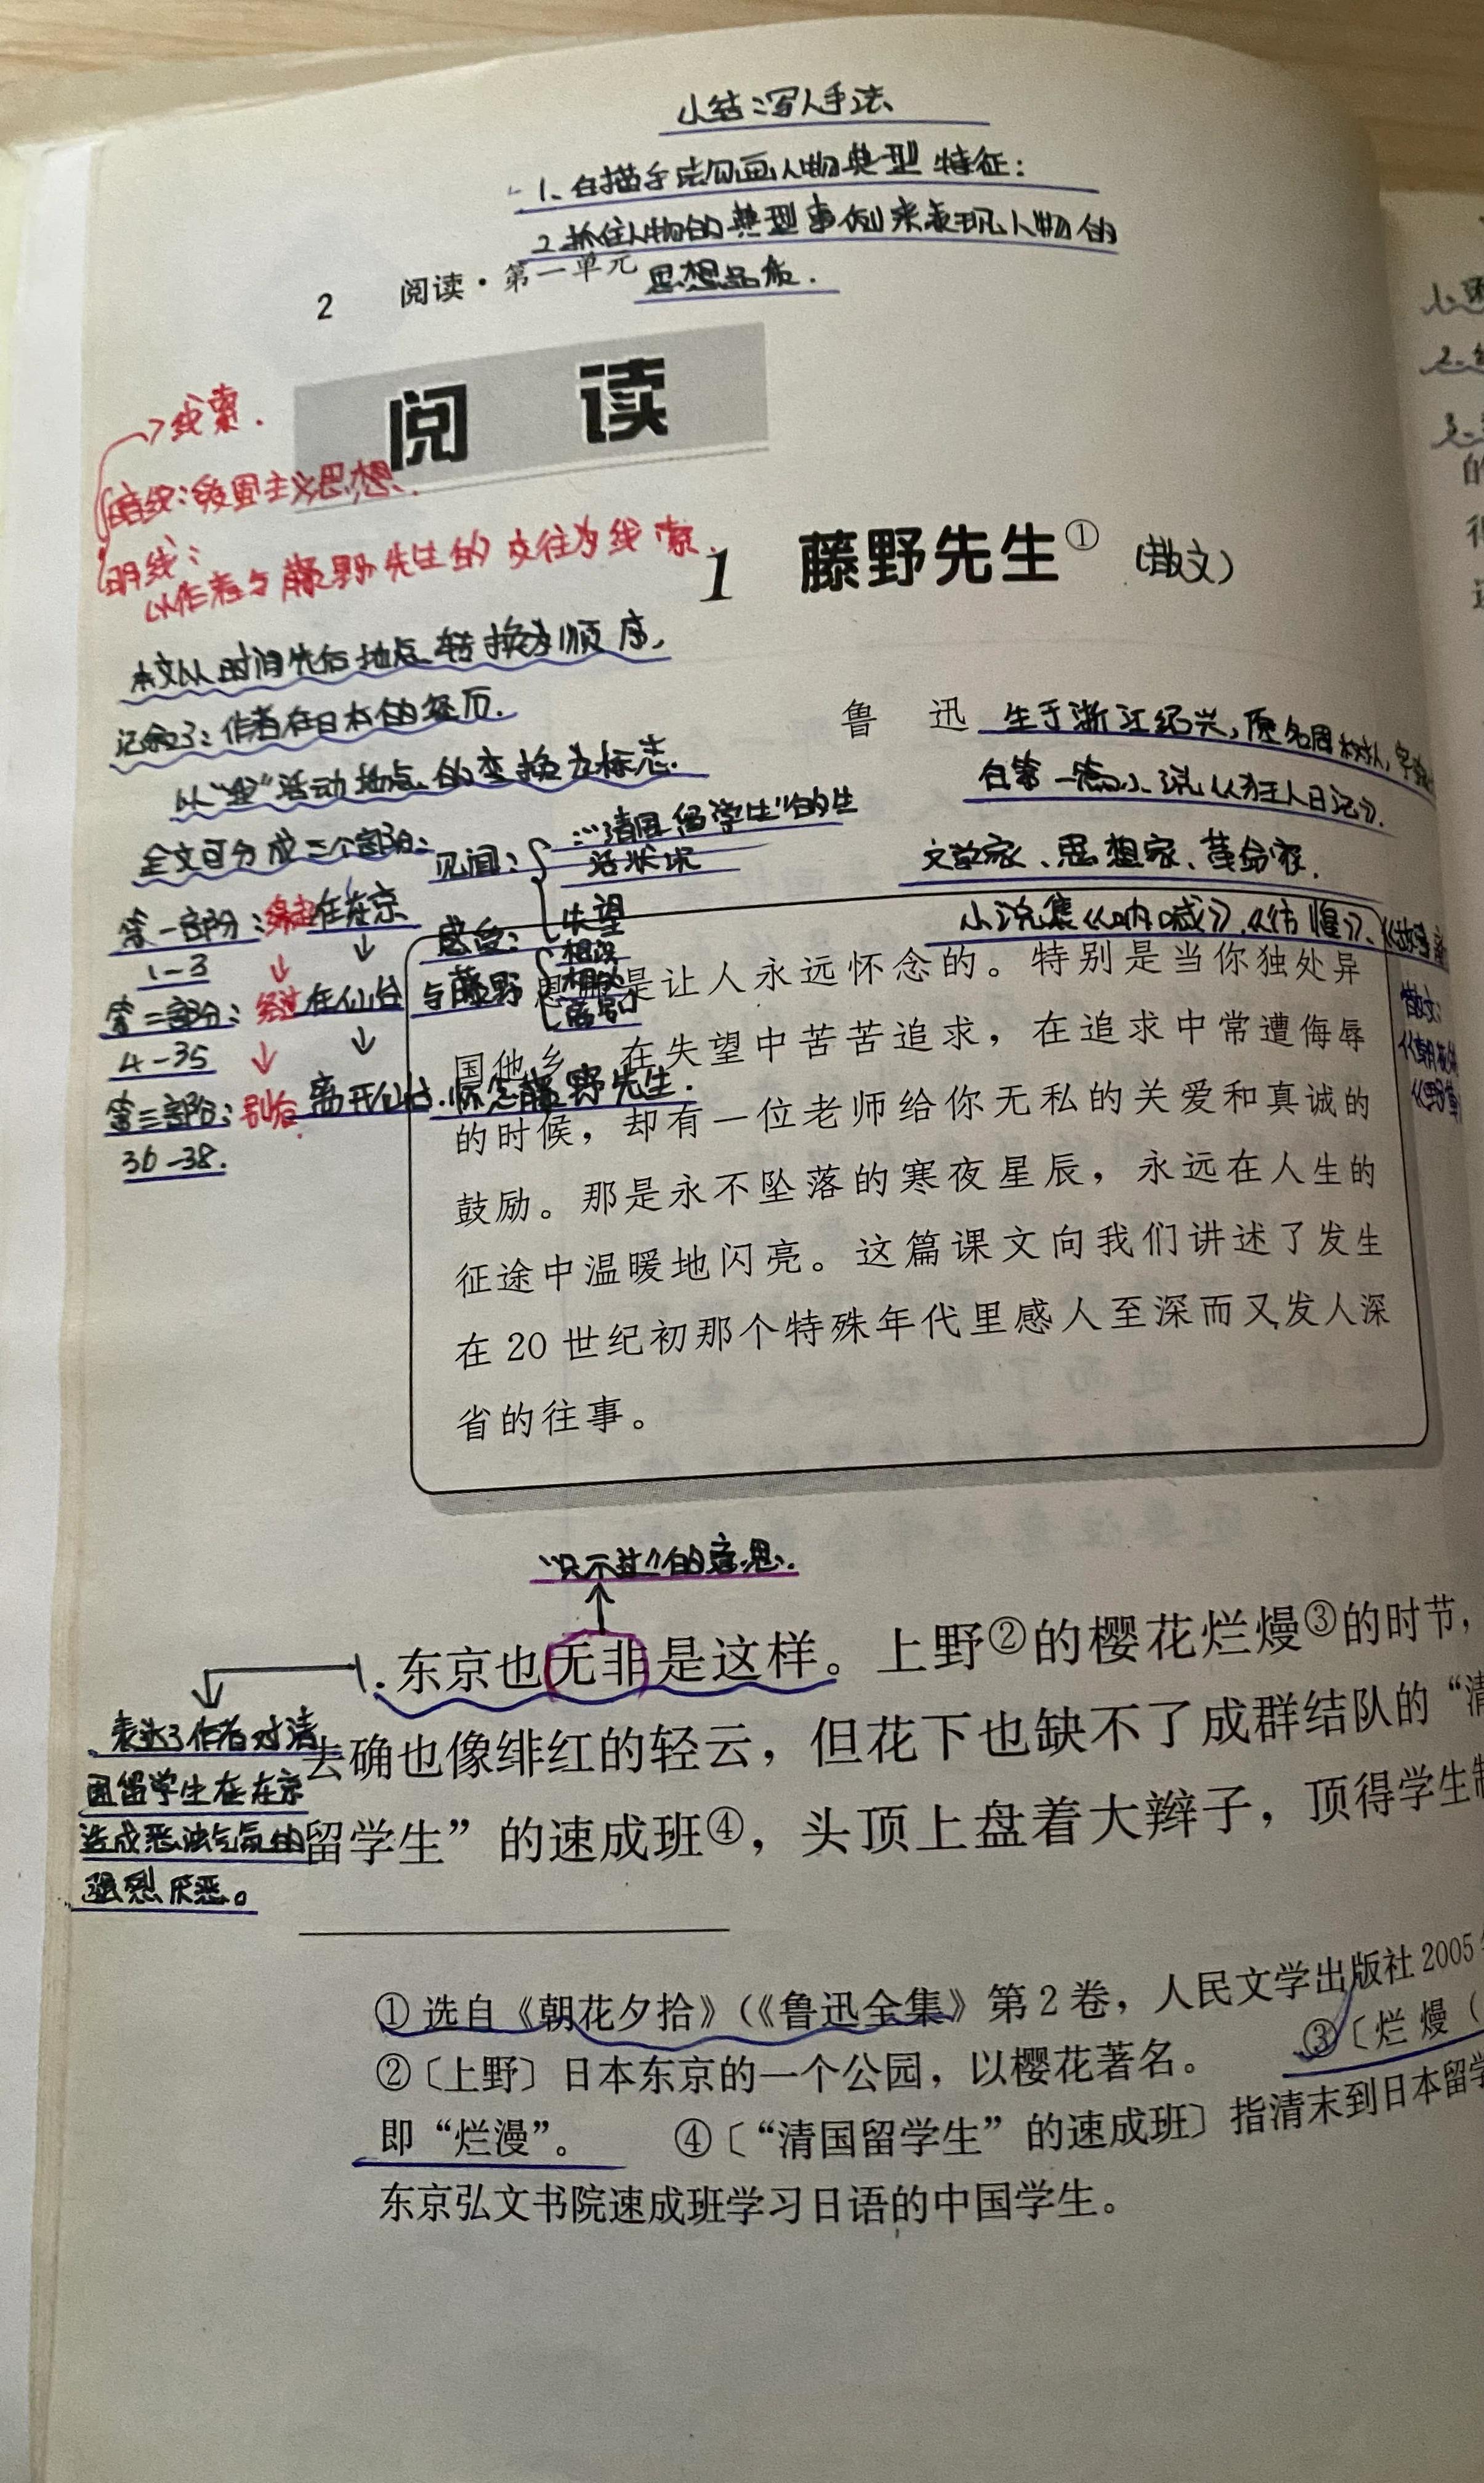 小结:写人手法
1、白描手法勾画人物典型特征:
2、抓住人物的典型事例来表现人物的
思想品质.
2 阅读·第一单元
阅 读
线索.
暗线:爱国主义思想.
明线:
以作者与藤野先生的交往为线索.
1 藤野先生① (散文)
本文以时间先后地点转换为顺序,
记叙了:作者在日本的经历.
以"我"活动地点的变换为标志.
全文可分成三个部分:
鲁 迅 生于浙江绍兴,原名周树人,字
白第一篇小说《狂人日记》.
文学家、思想家、革命家.
小说集《呐喊》、《彷惶》、《故事
散文:
《朝花
《野草
见闻: "清国留学生"的生
活状况
感受: 失望
第一部分:缘由在东京
1-3
第二部分:经过在仙台 与藤野 相识
相处
离别
4-35
第三部分:别后 离开仙台.怀念藤野先生.
36-38.
恩师是让人永远怀念的。特别是当你独处异
国他乡,在失望中苦苦追求,在追求中常遭侮辱
的时候,却有一位老师给你无私的关爱和真诚的
鼓励。那是永不坠落的寒夜星辰,永远在人生的
征途中温暖地闪亮。这篇课文向我们讲述了发生
在 20 世纪初那个特殊年代里感人至深而又发人深
省的往事。
"只不过"的意思.
1.东京也无非是这样。上野②的樱花烂熳③的时节,
去确也像绯红的轻云,但花下也缺不了成群结队的“清
留学生”的速成班④,头顶上盘着大辫子,顶得学生制
表达了作者对清
国留学生在东京
造成恶浊气氛的
强烈厌恶。
①选自《朝花夕拾》(《鲁迅全集》第 2 卷,人民文学出版社 2005
②〔上野〕日本东京的一个公园,以樱花著名。 ③〔烂熳(
即“烂漫”。 ④〔“清国留学生”的速成班〕指清末到日本留学
东京弘文书院速成班学习日语的中国学生。